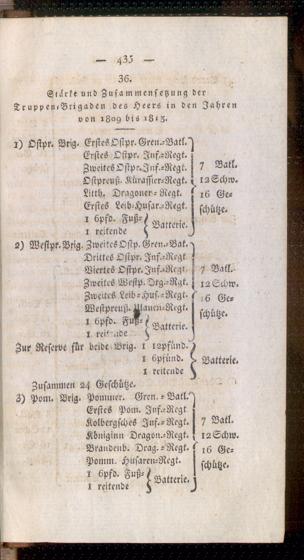 — 435 —
36.
Stärke und Zusammensetzung der
Truppen-Brigaden des Heers in den Jahren
von 1809 bis 1813.
1) Ostpr. Brig. Erstes Ostpr. Gren.-Batl.
Erstes Ostpr. Inf.-Regt.
Zweites Ostpr. Inf.-Regt. 7 Batl.
Ostpreuß. Kürassier-Regt. 12 Schw.
Litth. Dragoner-Regt. 16 Ge-
Erstes Leib-Husar.-Regt. schütze.
1 6pfd. Fuß-
1 reitende Batterie.
2) Westpr. Brig. Zweites Ostp. Gren.-Bat.
Drittes Ostpr. Inf.-Regt
Viertes Ostpr. Inf.-Regt. 7 Batl.
Zweites Westp. Drg.-Regt. 12 Schw.
Zweites Leib-Hus.-Regt. 16 Ge-
Westpreuß. Ulanen-Regt. schütze.
1 6pfd. Fuß-
1 reitende Batterie.
Zur Reserve für beide Brig. 1 12pfünd.
1 6pfünd. Batterie.
1 reitende
Zusammen 24 Geschütze.
3) Pom. Brig. Pommer. Gren.-Batl.
Erstes Pom. Inf.-Regt
Kolbergsches Inf.-Regt. 7 Batl.
Königinn Dragon.-Regt. 12 Schw.
Brandenb. Drag.-Regt. 16 Ge-
Pomm. Husaren-Regt. schütze.
1 6pfd. Fuß-
1 reitende Batterie.